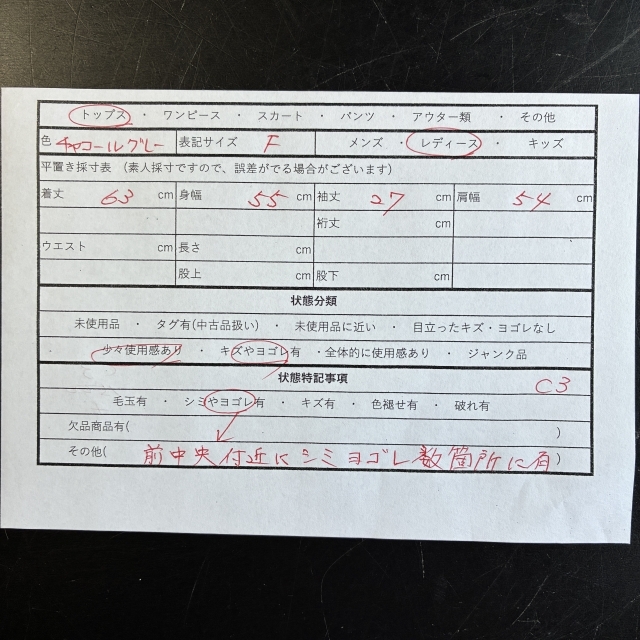 トップス ・ ワンピース ・ スカート ・ パンツ ・ アウター類 ・ その他
色 チャコールグレー 表記サイズ F メンズ ・ レディース ・ キッズ
平置き採寸表 (素人採寸ですので、誤差がでる場合がございます)
着丈 63 cm 身幅 55 cm 袖丈 27 cm 肩幅 54 cm
裄丈 cm
ウエスト cm 長さ cm
股上 cm 股下 cm
状態分類
未使用品 ・ タグ有(中古品扱い) ・ 未使用品に近い ・ 目立ったキズ・ヨゴレなし
少々使用感あり ・ キズやヨゴレ有 ・全体的に使用感あり ・ ジャンク品
状態特記事項 C3
毛玉有 ・ シミやヨゴレ有 ・ キズ有 ・ 色褪せ有 ・ 破れ有
欠品商品有( )
その他( 前中央付近にシミヨゴレ数箇所に有 )